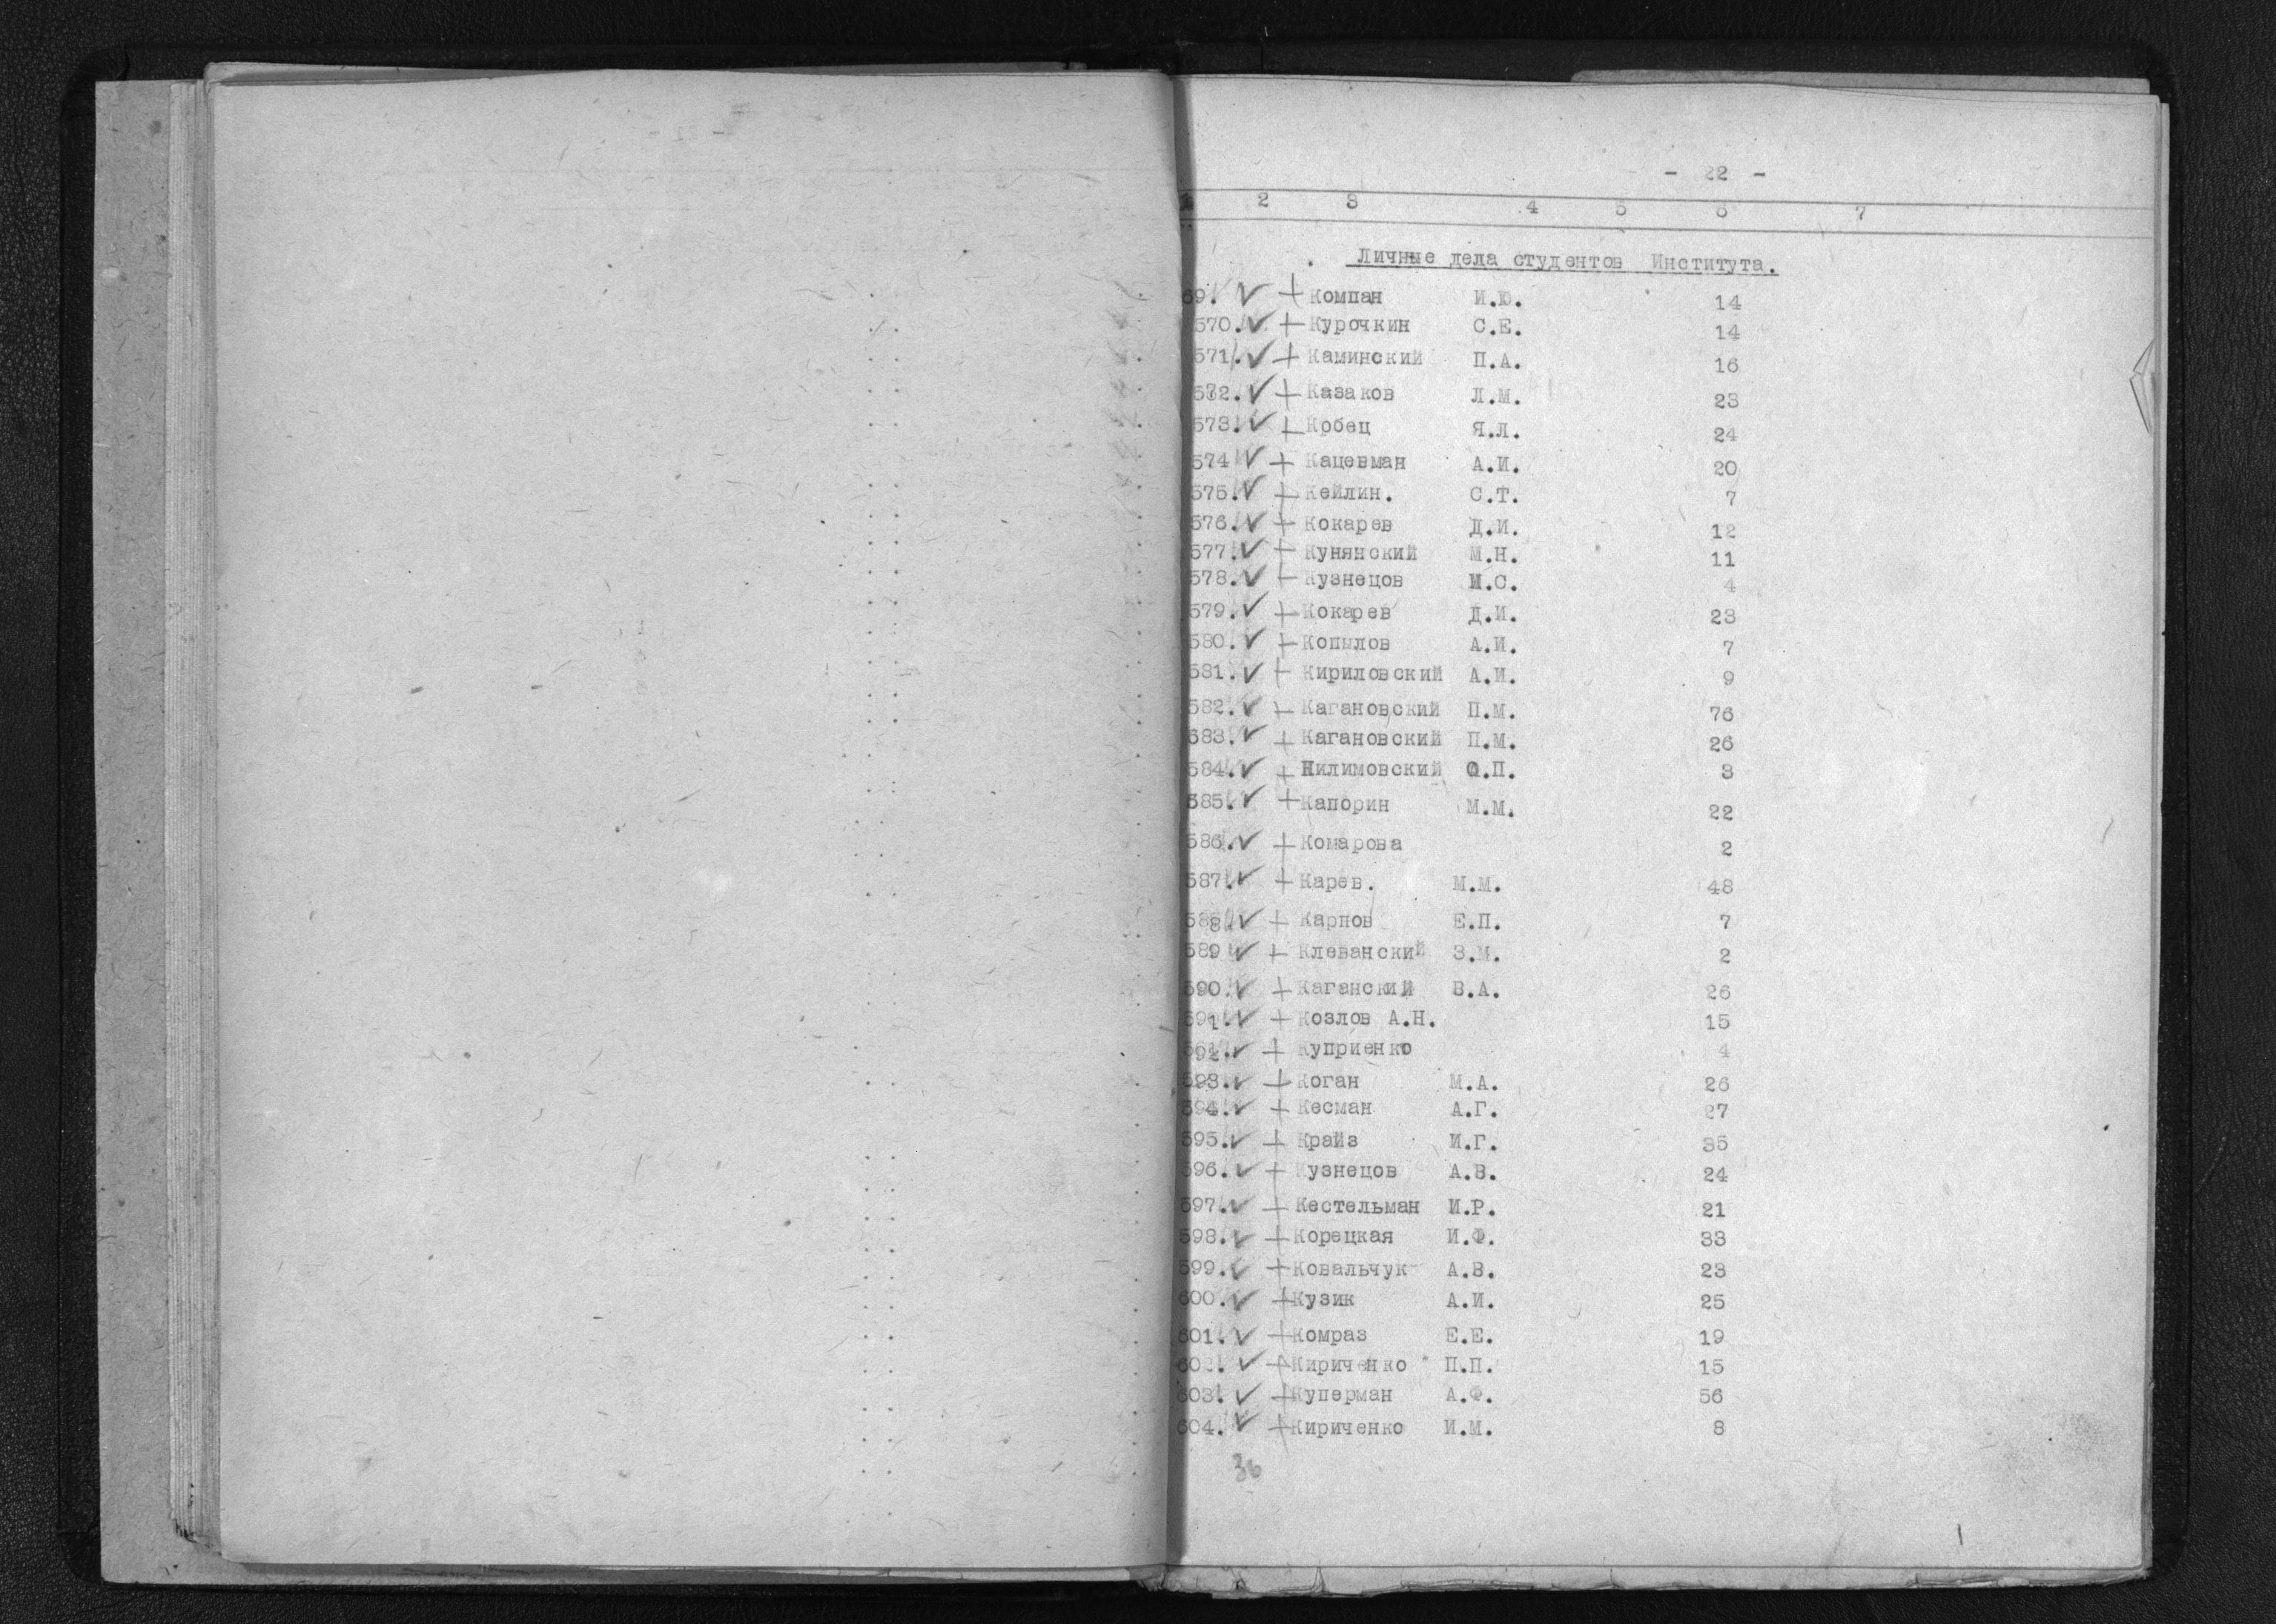 - 22 -
1 2 3 4 5 6 7
Личные дела студентов Института.
69. ✓ + Компан И.Ю. 14
570. ✓ + Курочкин С.Е. 14
571. ✓ + Каминский П.А. 16
572. ✓ + Казаков Л.М. 23
573. ✓ + Кобец Я.Л. 24
574 ✓ + Кацевман А.И. 20
575. ✓ + Кейлин. С.Т. 7
576. ✓ + Кокарев Д.И. 12
577. ✓ + Кунянский М.Н. 11
578. ✓ + Кузнецов И.С. 4
579. ✓ + Кокарев Д.И. 23
580. ✓ + Копылов А.И. 7
581. ✓ + Кириловский А.И. 9
582. ✓ + Кагановский П.М. 76
583. ✓ + Кагановский П.М. 26
584. ✓ + Килимовский О.П. 3
585. ✓ + Капорин М.М. 22
586. ✓ + Комарова 2
587. ✓ + Карев. М.М. 48
588. ✓ + Карпов Е.П. 7
589 ✓ + Клеванский З.М. 2
590. ✓ + Каганский В.А. 26
591. ✓ + Козлов А.Н. 15
592. ✓ + Куприенко 4
593. ✓ + Коган М.А. 26
594. ✓ + Кесман А.Г. 27
595. ✓ + Крайз И.Г. 35
596. ✓ + Кузнецов А.В. 24
597. ✓ + Кестельман И.Р. 21
598. ✓ + Корецкая И.Ф. 33
599. ✓ + Ковальчук А.В. 23
600. ✓ + Кузик А.И. 25
601. ✓ + Комраз Е.Е. 19
602. ✓ + Кириченко П.П. 15
603. ✓ + Куперман А.Ф. 56
604. ✓ + Кириченко И.М. 8
36